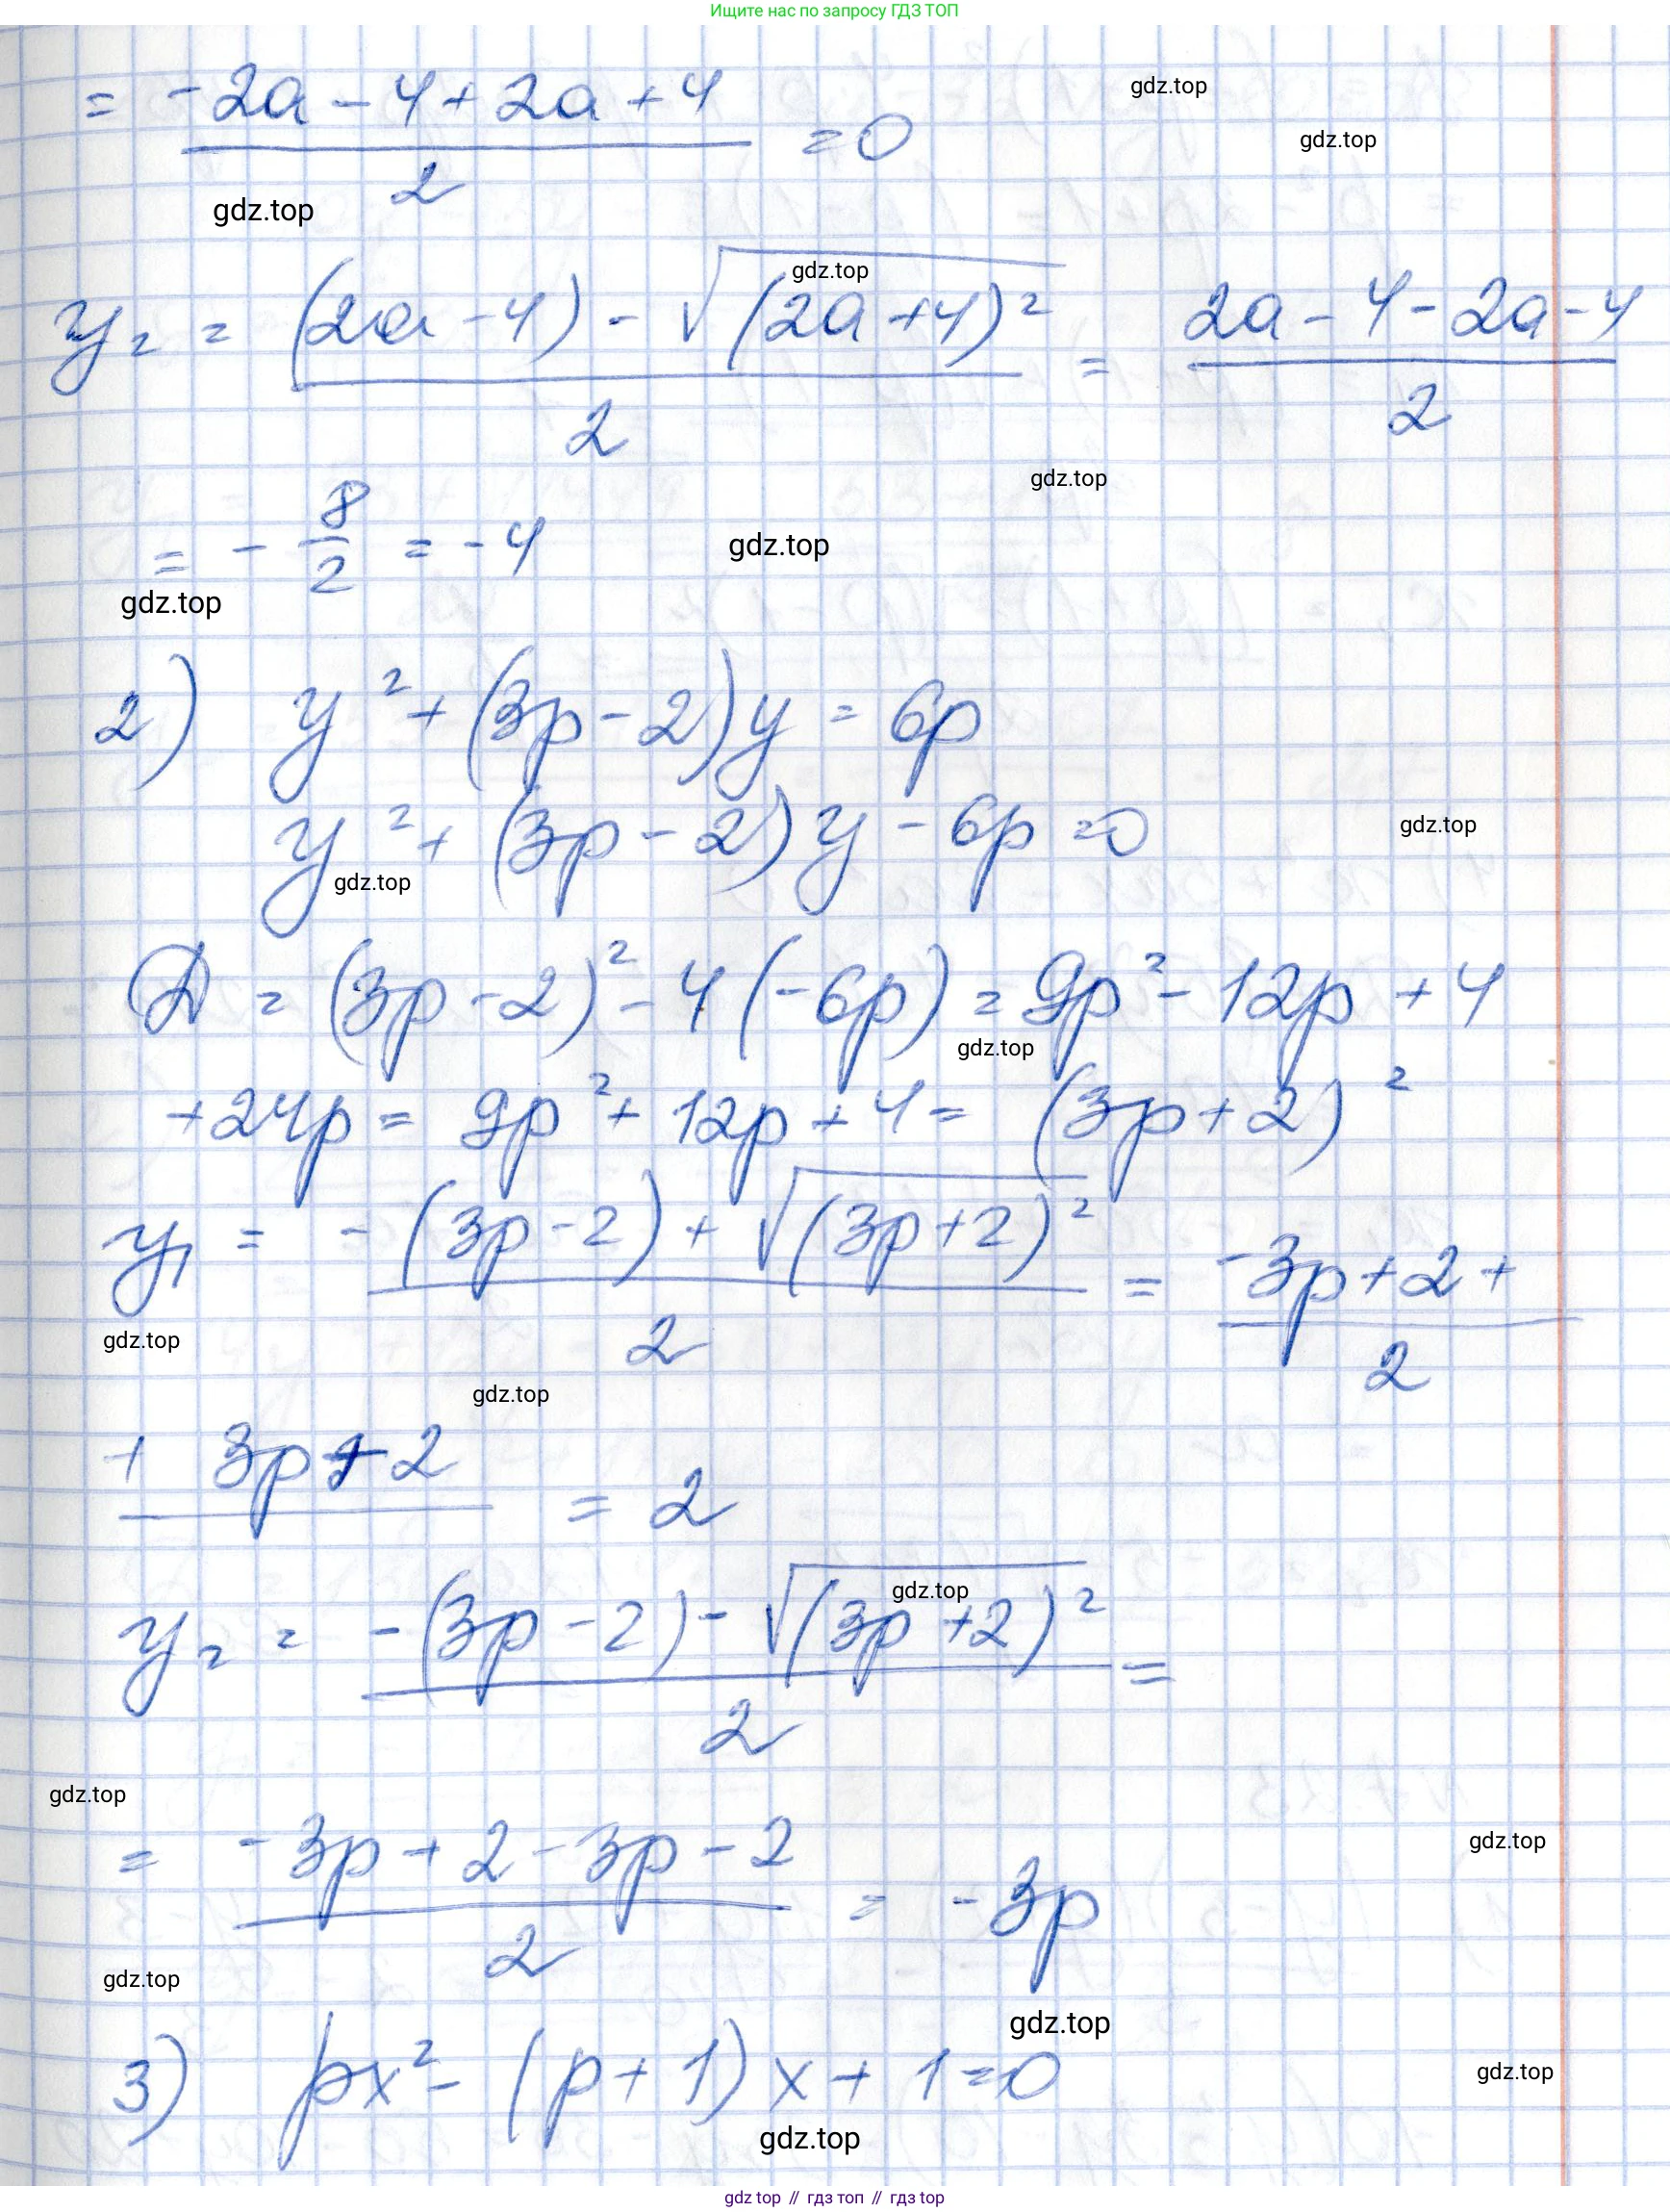 Ищите нас по запросу ГДЗ ТОП
= -2a - 4 + 2a + 4 / 2 = 0
gdz.top
gdz.top
gdz.top
gdz.top
y₂ = (2a - 4) - √(2a + 4)² / 2 = 2a - 4 - 2a - 4 / 2
gdz.top
= - 8/2 = -4
gdz.top
gdz.top
2) y² + (3p - 2)y = 6p
y² + (3p - 2)y - 6p = 0
gdz.top
gdz.top
D = (3p - 2)² - 4(-6p) = 9p² - 12p + 4
gdz.top
+ 24p = 9p² + 12p + 4 = (3p + 2)²
y₁ = -(3p - 2) + √(3p + 2)² / 2 = -3p + 2 + / 2
gdz.top
gdz.top
+ 3p + 2 = 2
gdz.top
y₂ = -(3p - 2) - √(3p + 2)² / 2 =
gdz.top
gdz.top
= -3p + 2 - 3p - 2 / 2 = -3p
gdz.top
gdz.top
3) px² - (p + 1)x + 1 = 0
gdz.top
gdz.top
gdz top // гдз топ // гдз top